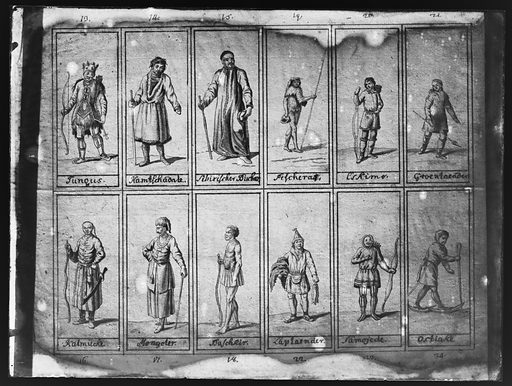 13. 14. 15. 19. 20. 21.
Tungus. Kamtschadale. Sibirischer Buchar. Pescherä. Eskimo. Groenlaender
Kalmücke. Mongoler. Baschkir. Laplaender. Samojede. Ostiake
16. 17. 18. 22. 23. 24.